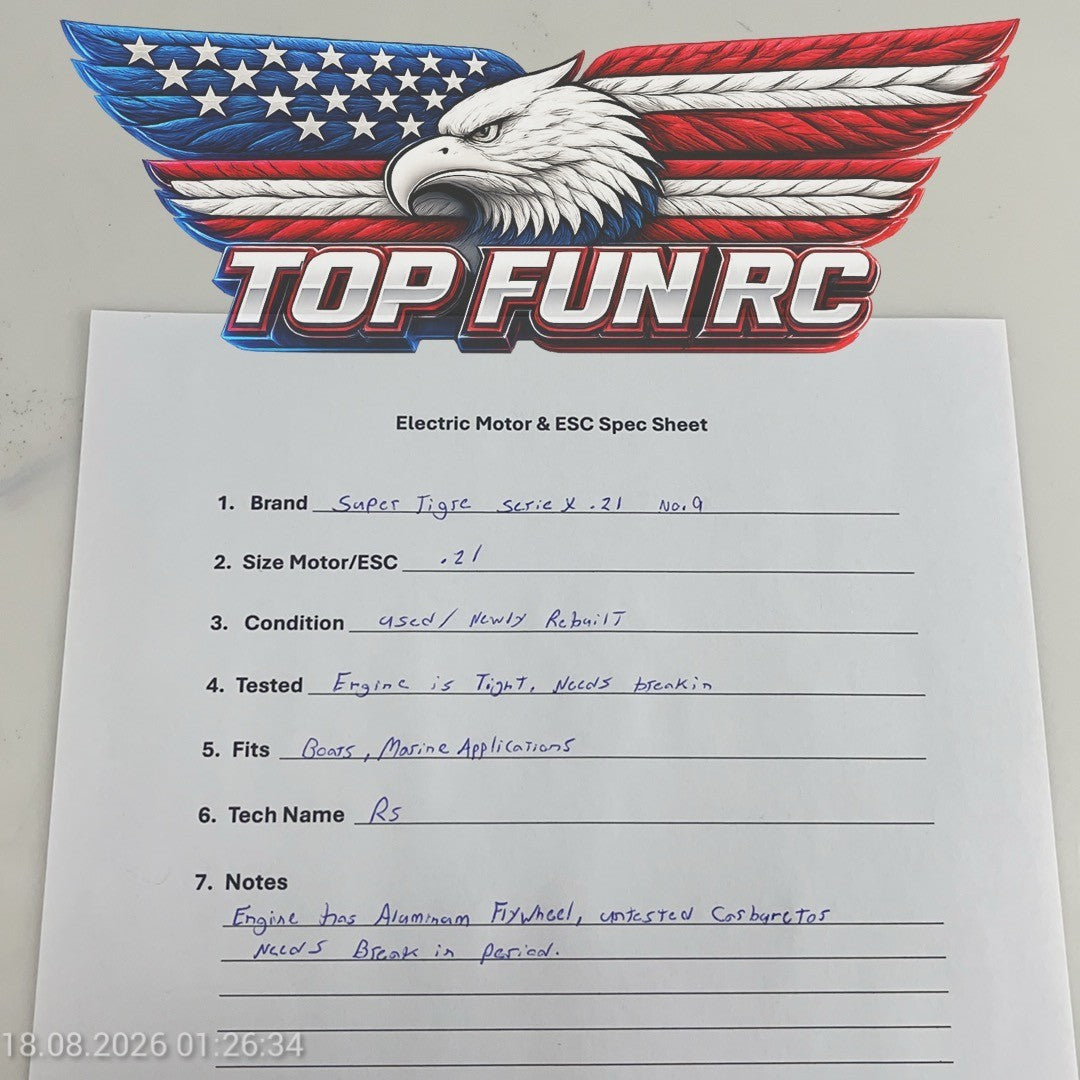 TOP FUN RC
Electric Motor & ESC Spec Sheet
1. Brand Super Tigre Serie X .21 No.9
2. Size Motor/ESC .21
3. Condition used/ Newly Rebuilt
4. Tested Engine is Tight, Needs breakin
5. Fits Boats, Marine Applications
6. Tech Name Rs
7. Notes
Engine has Aluminum Flywheel, untested Carburetor
Needs Break in period.
18.08.2026 01:26:34